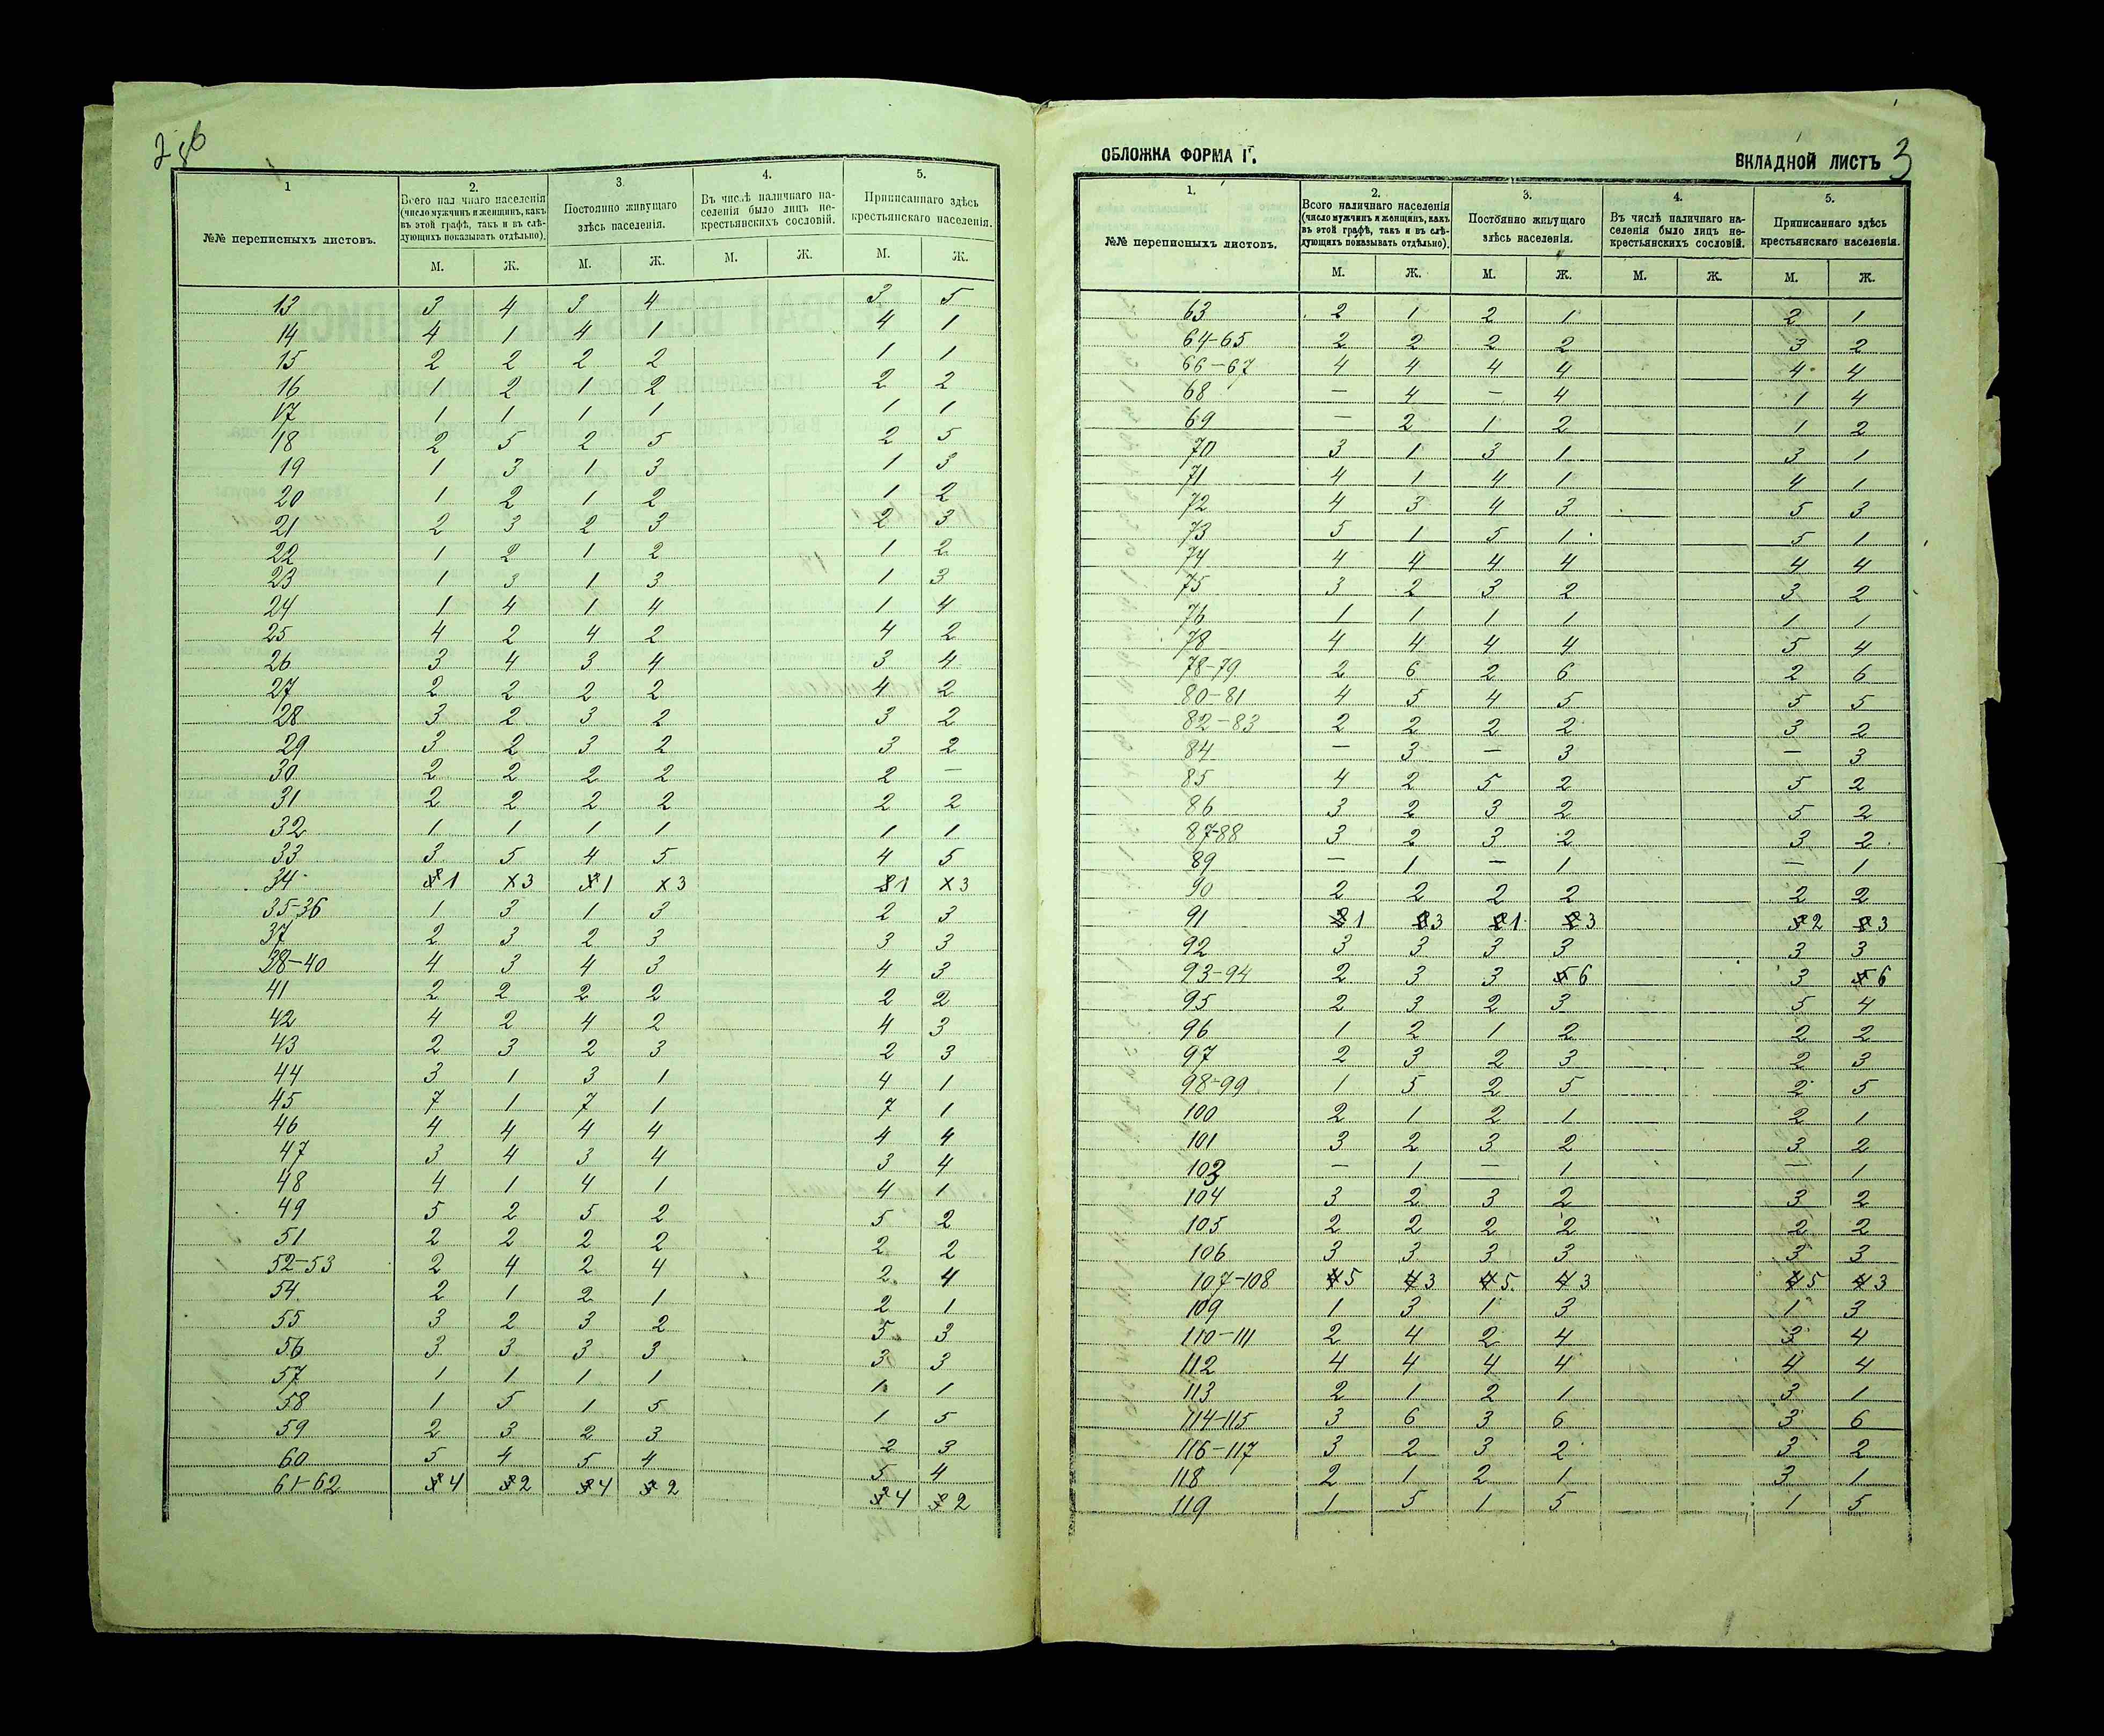 2 об
1
2.
3.
4.
5.
№№ переписныхъ листовъ.
Всего нал чнаго населенія (число мужчинъ и женщинъ, какъ въ этой графѣ, такъ и въ слѣ- дующихъ показывать отдѣльно).
Постоянно живущаго здѣсь населенія.
Въ числѣ наличнаго на- селенія было лицъ не- крестьянскихъ сословій.
Приписаннаго здѣсь крестьянскаго населенія.
М. Ж. М. Ж. М. Ж. М. Ж.
13 3 4 3 4 3 5
14 4 1 4 1 4 1
15 2 2 2 2 1 1
16 1 2 1 2 2 2
17 1 1 1 1 1 1
18 2 5 2 5 2 5
19 1 3 1 3 1 3
20 1 2 1 2 1 2
21 2 3 2 3 2 3
22 1 2 1 2 1 2
23 1 3 1 3 1 3
24 1 4 1 4 1 4
25 4 2 4 2 4 2
26 3 4 3 4 3 4
27 2 2 2 2 4 2
28 3 2 3 2 3 2
29 3 2 3 2 3 2
30 2 2 2 2 2 —
31 2 2 2 2 2 2
32 1 1 1 1 1 1
33 3 5 4 5 4 5
34 1 3 1 3 1 3
35-36 1 3 1 3 2 3
37 2 3 2 3 3 3
38-40 4 3 4 3 4 3
41 2 2 2 2 2 2
42 4 2 4 2 4 3
43 2 3 2 3 2 3
44 3 1 3 1 4 1
45 7 1 7 1 7 1
46 4 4 4 4 4 4
47 3 4 3 4 3 4
48 4 1 4 1 4 1
49 5 2 5 2 5 2
51 2 2 2 2 2 2
52-53 2 4 2 4 2 4
54 2 1 2 1 2 1
55 3 2 3 2 5 3
56 3 3 3 3 3 3
57 1 1 1 1 1 1
58 1 5 1 5 1 5
59 2 3 2 3 2 3
60 5 4 5 4 5 4
61-62 4 2 4 2 4 2
ОБЛОЖКА ФОРМА Г.
ВКЛАДНОЙ ЛИСТЪ 3
1.
2.
3.
4.
5.
№№ переписныхъ листовъ.
Всего наличнаго населенія (число мужчинъ и женщинъ, какъ въ этой графѣ, такъ и въ слѣ- дующихъ показывать отдѣльно).
Постоянно живущаго здѣсь населенія.
Въ числѣ наличнаго на- селенія было лицъ не- крестьянскихъ сословій.
Приписаннаго здѣсь крестьянскаго населенія.
М. Ж. М. Ж. М. Ж. М. Ж.
63 2 1 2 1 2 1
64-65 2 2 2 2 3 2
66-67 4 4 4 4 4 4
68 — 4 — 4 1 4
69 — 2 1 2 1 2
70 3 1 3 1 3 1
71 4 1 4 1 4 1
72 4 3 4 3 5 3
73 5 1 5 1 5 1
74 4 4 4 4 4 4
75 3 2 3 2 3 2
76 1 1 1 1 1 1
78 4 4 4 4 5 4
78-79 2 6 2 6 2 6
80-81 4 5 4 5 5 5
82-83 2 2 2 2 3 2
84 — 3 — 3 — 3
85 4 2 5 2 5 2
86 3 2 3 2 5 2
87-88 3 2 3 2 3 2
89 — 1 — 1 — 1
90 2 2 2 2 2 2
91 1 3 1 3 2 3
92 3 3 3 3 3 3
93-94 2 3 3 6 3 6
95 2 3 2 3 5 4
96 1 2 1 2 2 2
97 2 3 2 3 2 3
98-99 1 5 2 5 2 5
100 2 1 2 1 2 1
101 3 2 3 2 3 2
103 — 1 — 1 — 1
104 3 2 3 2 3 2
105 2 2 2 2 2 2
106 3 3 3 3 3 3
107-108 5 3 5 3 5 3
109 1 3 1 3 1 3
110-111 2 4 2 4 3 4
112 4 4 4 4 4 4
113 2 1 2 1 3 1
114-115 3 6 3 6 3 6
116-117 3 2 3 2 3 2
118 2 1 2 1 3 1
119 1 5 1 5 1 5